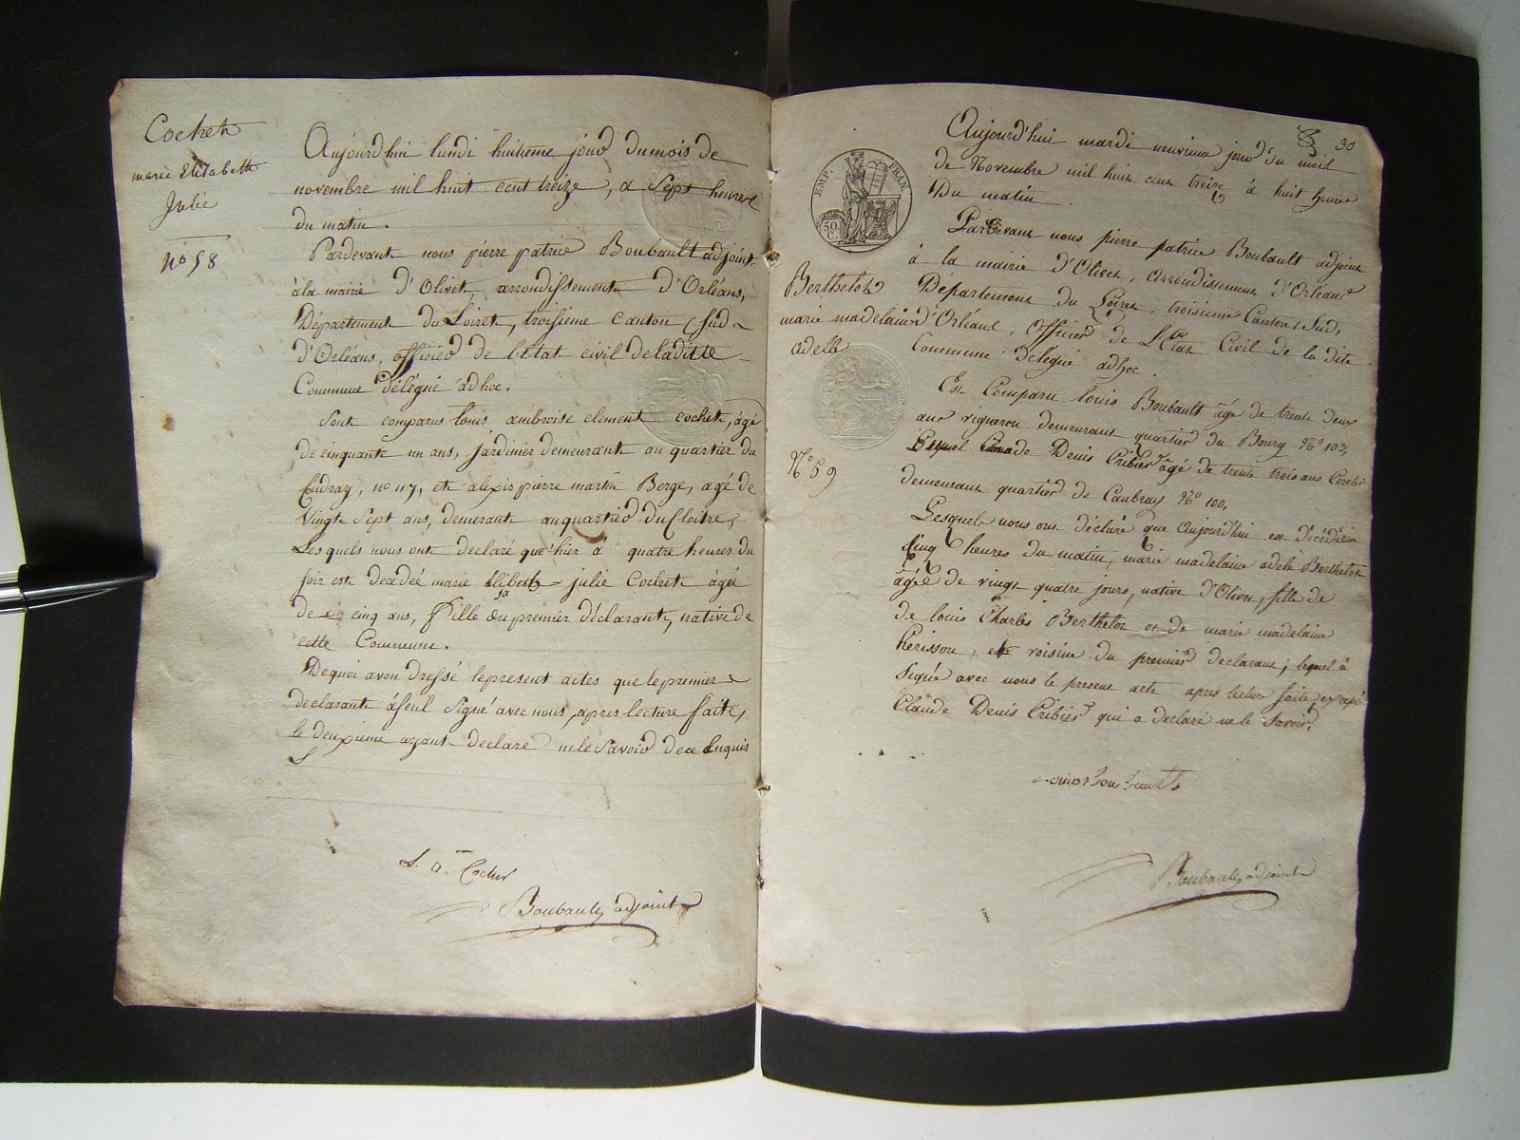 Cochet
marie Elisabeth
Julie
n° 58
Aujourdhui lundi huitieme jour du mois de
novembre mil huit cent treize, a Sept heures
du matin.
Pardevant nous pierre patrice Boubault adjoint
à la mairie d'Olivet arrondissement d'Orléans,
Département du Loiret, troisieme Canton (Sud
d'Orléans, officier de l'Etat civil de laditte
Commune délégué adhoc.
Sont comparus louis ambroise clement cochet, âgé
de cinquante un ans, jardinier demeurant au quartier du
n° 117, et alexis pierre martin Berge, agé de
Vingt Sept ans, demeurant au quartier du Cloitre,
Lesquels nous ont declaré que hier à quatre heures du
soir est decedée marie Elisabeth julie Cochet âgée
de cinq ans, fille du premier déclarant, native de
cette Commune.
De quoi avon dressé le present actes que le premier
declarant à seul Signé avec nous, apres lecture faite,
le deuxieme ayant declaré ne le Savoir de ce Enquis
L. a. Cochet
Boubault adjoint
30
EMP. FRAN.
50 C.
Aujourd'hui mardi neuvieme jour du mois
de Novembre mil huit cent treize à huit heures
Du matin
Pardevant nous pierre patrice Boubault adjoint
à la mairie d'Olivet, arrondissement d'Orléans
Département du Loiret, troisieme Canton (Sud,
d'Orléans, officier de l'Etat Civil de la dite
Commune délegué adhoc.
Berthelot
marie madelaine
adelle
N° 59
Est Comparu louis Boubault âgé de trente deux
ans vigneron demeurant quartier du Bourg N° 103,
Denis Cribier âgé de trente trois ans
demeurant quartier de Caubray N° 100,
Lesquels nous ont déclaré que Aujourd'hui est décédée à
Cinq heures du matin, marie madelaine adele Berthelot
âgée de vingt quatre jours, native d'Olivet, fille de
de louis Charles Berthelot et de marie madelaine
herisson, voisine du premier declarant; lequel à
Signé avec nous le present acte apres lecture faite
Claude Denis Cribier qui a declaré ne le Savoir.
Louis Boubault
Boubault adjoint